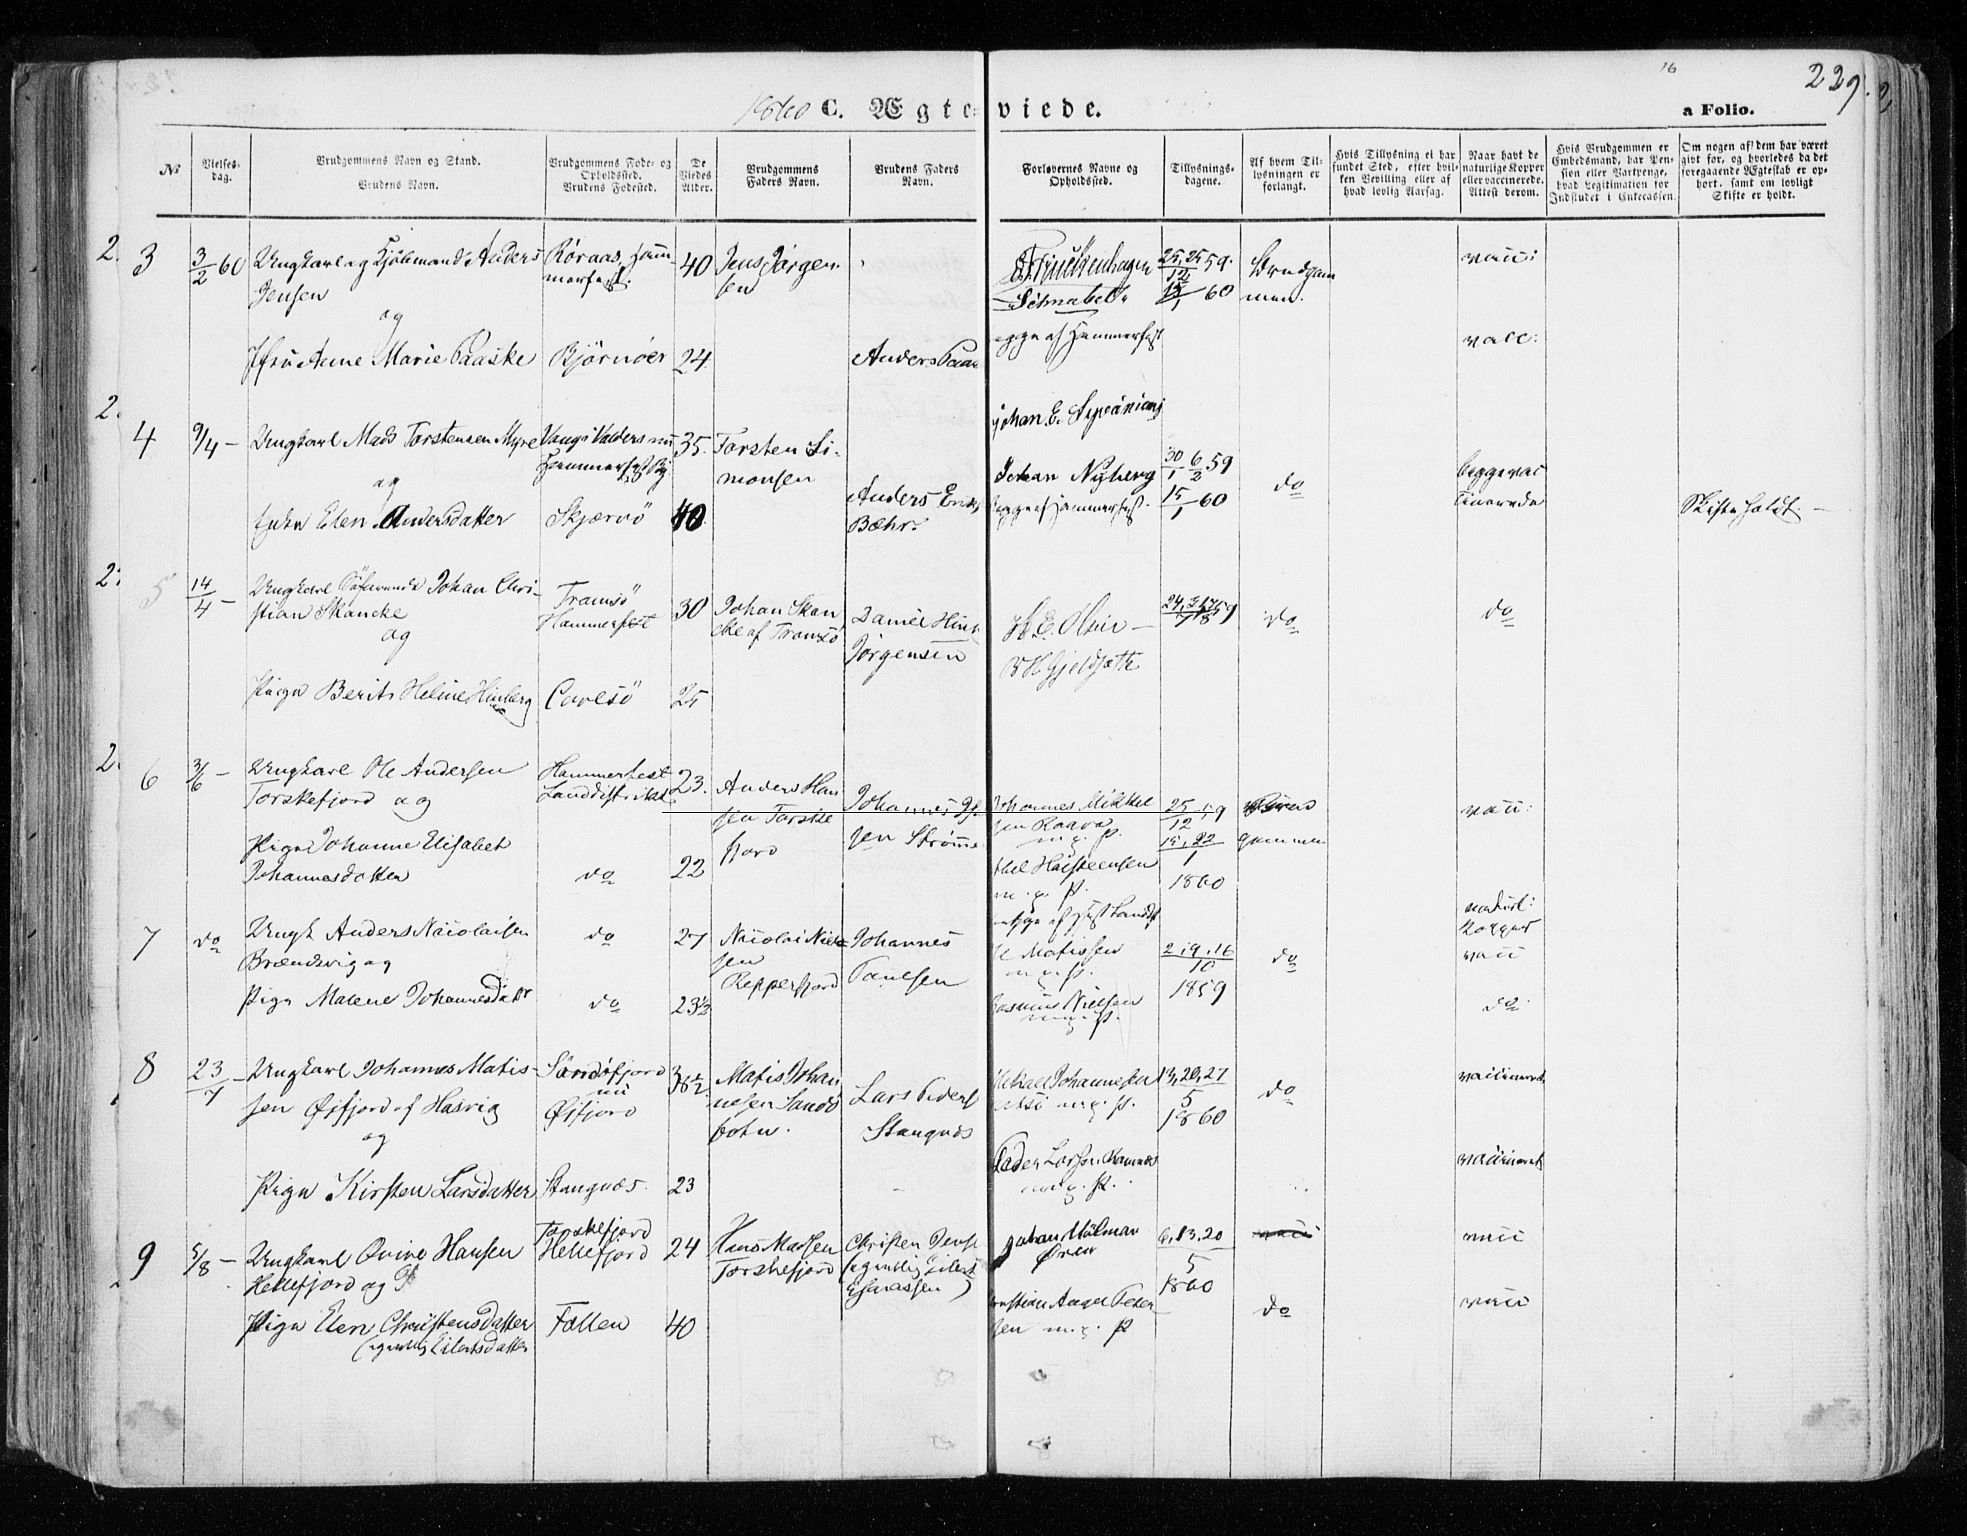 16
229.
1860 C. Ægteviede.
a Folio.
No
Vielses-
dag.
Brudgommens Navn og Stand.
Brudens Navn.
Brudgommens Føde- og
Opholdssted.
Brudens Fødested.
De
Viedes
Alder.
Brudgommens
Faders Navn.
Brudens Faders
Navn.
Forlovernes Navne og
Opholdssted.
Tillysnings-
dagene.
Af hvem Til-
lysningen er
forlangt.
Hvis Tillysning ei har
fundet Sted, efter hvil-
ken Bevilling eller af
hvad lovlig Aarsag.
Naar havt de
naturlige Kopper
eller vaccinerede.
Attest derom.
Hvis Brudgommen er
Embedsmand, har Pen-
sion eller Vartpenge,
hvad Legitimation for
Indskudet i Enkecassen.
Om nogen af dem har været
gift før, og hvorledes da det
foregaaende Ægteskab er op-
hørt, samt om lovligt
Skifte er holdt.
2. 3
3/2 60
Ungkarl og Kjøbmand Anders
Jensen
og
Jfru Anne Marie Paaske
Røraas, Ham-
merfest.
Bjørnøer
40
24
Jens Jørgen-
sen
Anders Paas
Schnabel
begge af Hammerfest
25,25/12 59.
15/1 60
Brudgom
men.
vacc:
vacc:
2. 4
9/4 –
Ungkarl Mads Torstensen Myre
og
Enken Elen Andersdatter
Vang i Valders nu
Hammerfest By
Skjærvö
35.
40.
Torsten Si-
monsen
Anders Erik
Bæhr.
Johan E. Syvänieng
Johan Nyberg
begge af Hammerfest.
30/1 6/2 59
15/1 60
do
begge vac
cinerede
Skifte holdt. –
2. 5
14/4 –
Ungkarl Johan Chri-
stian Skancke
og
Pigen Berit Heline Hinberg
Tromsö
Hammerfest
Carlsö
30
25
Johan Skan
cke af Tromsö
Daniel Hin
Jørgensen
do
do
2. 6
3/6 –
Ungkarl Ole Andersen
Torskefjord og
Pigen Johanne Elisabet
Johannesdatter
Hammerfest
Landdistrikt
do
23.
22
Anders Han
sen Torske
fjord
Johannes
sen Strømme
Johannes Mikkel
sen Raava
m. p. P.
25/12 59
15, 22/1
1860
Brud
gommen
vacc:
naturl:
Kopper
7
do
Ungk Anders Nicolaisen
Brændsvig og
Pige Malene Johannesdatter
do
do
27
23½
Nicolai Niel
sen
Repperfjord
Johannes
Paulsen
Matissen
m. p. P.
Rasmus Nielsen
m. p. P.
2, 9, 16/10
1859
do
vacc
do
8
23/7 –
Ungkarl Johannes Matis-
sen Øifjord af Hasvig
og
Pige Kirsten Larsdatter
Sandöfjord
nu
Øifjord
Stangnæs.
38½
23
Matis Johan
nesen Sandö
botn.
Lars Peders
Stangnæs
Mikkel Johannesen
m. p. P.
Peder Larsen
m. p. P.
13, 20, 27/5
1860
do
vaccineret
vaccineret
9
5/8 –
Ungkarl Qvive Hansen
Hellefjord og P
Pigen Elen Christensdatter
(egentlig Eilertsdatter
Torskefjord
Hellefjord
Fallen
24
40
Hans Madsen
Torskefjord
Christen Jens
(egentlig Eilert
Esaiassen)
Johan Hilmar
Øren
Kristian Angel Peter
sen m. p. P
6, 13, 20/5
1860
do
vacc
vacc